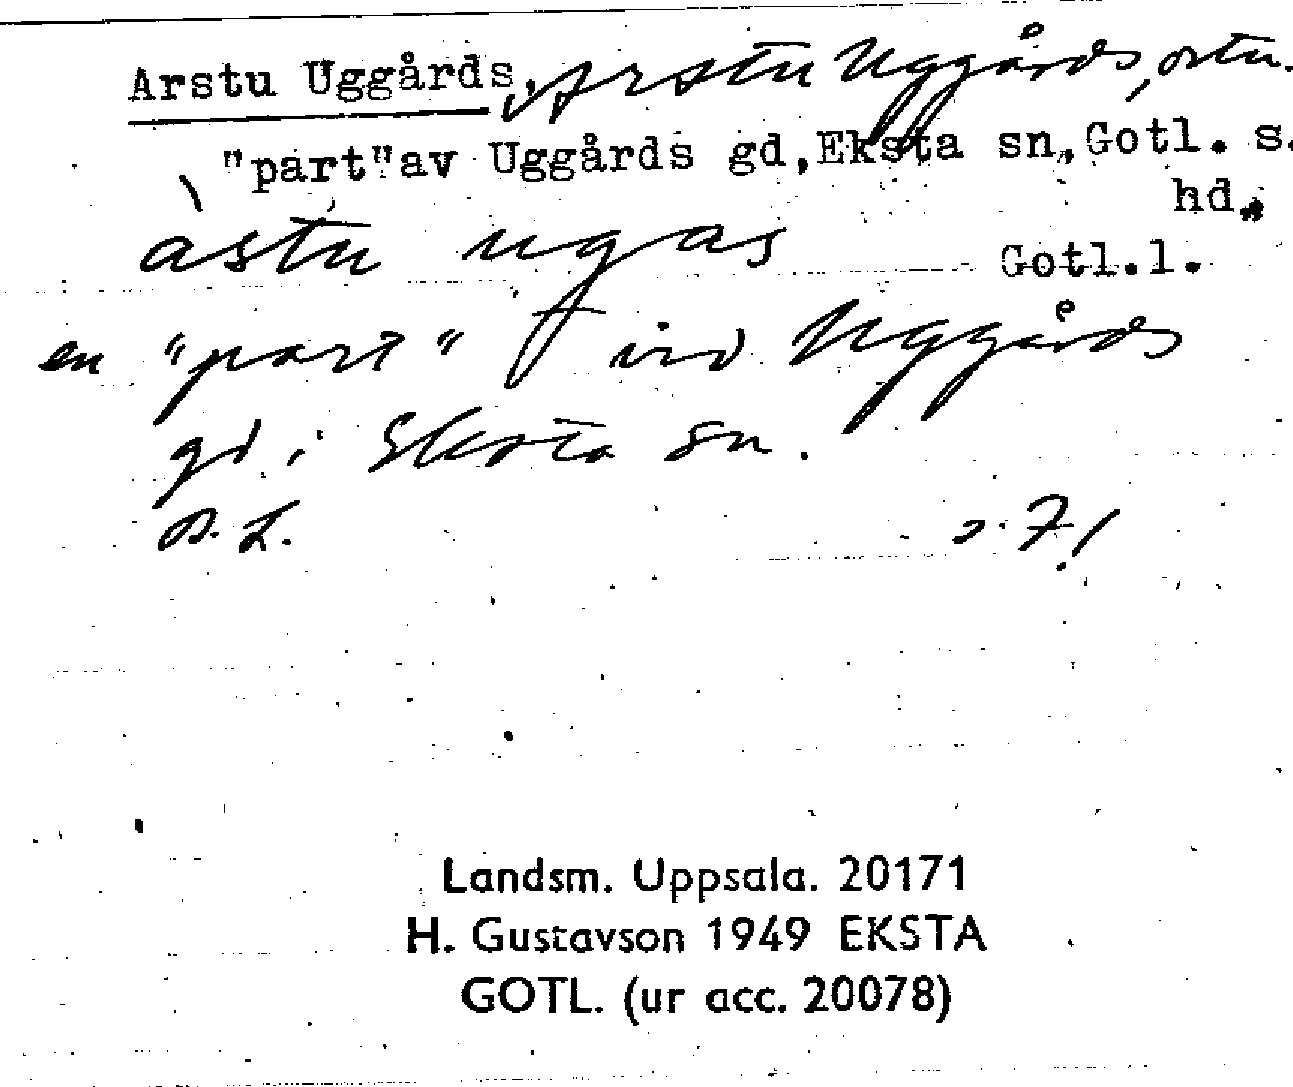 Arstu Uggårds, Arstu Uggårds, ortn.
"part" av Uggårds gd, Eksta sn, Gotl. s.
hd.,
àstu ugas
Gotl.l.
en "part" vid Uggårds
gd i Eksta sn.
s. 7
Landsm. Uppsala. 20171
H. Gustavson 1949 EKSTA
GOTL. (ur acc. 20078)